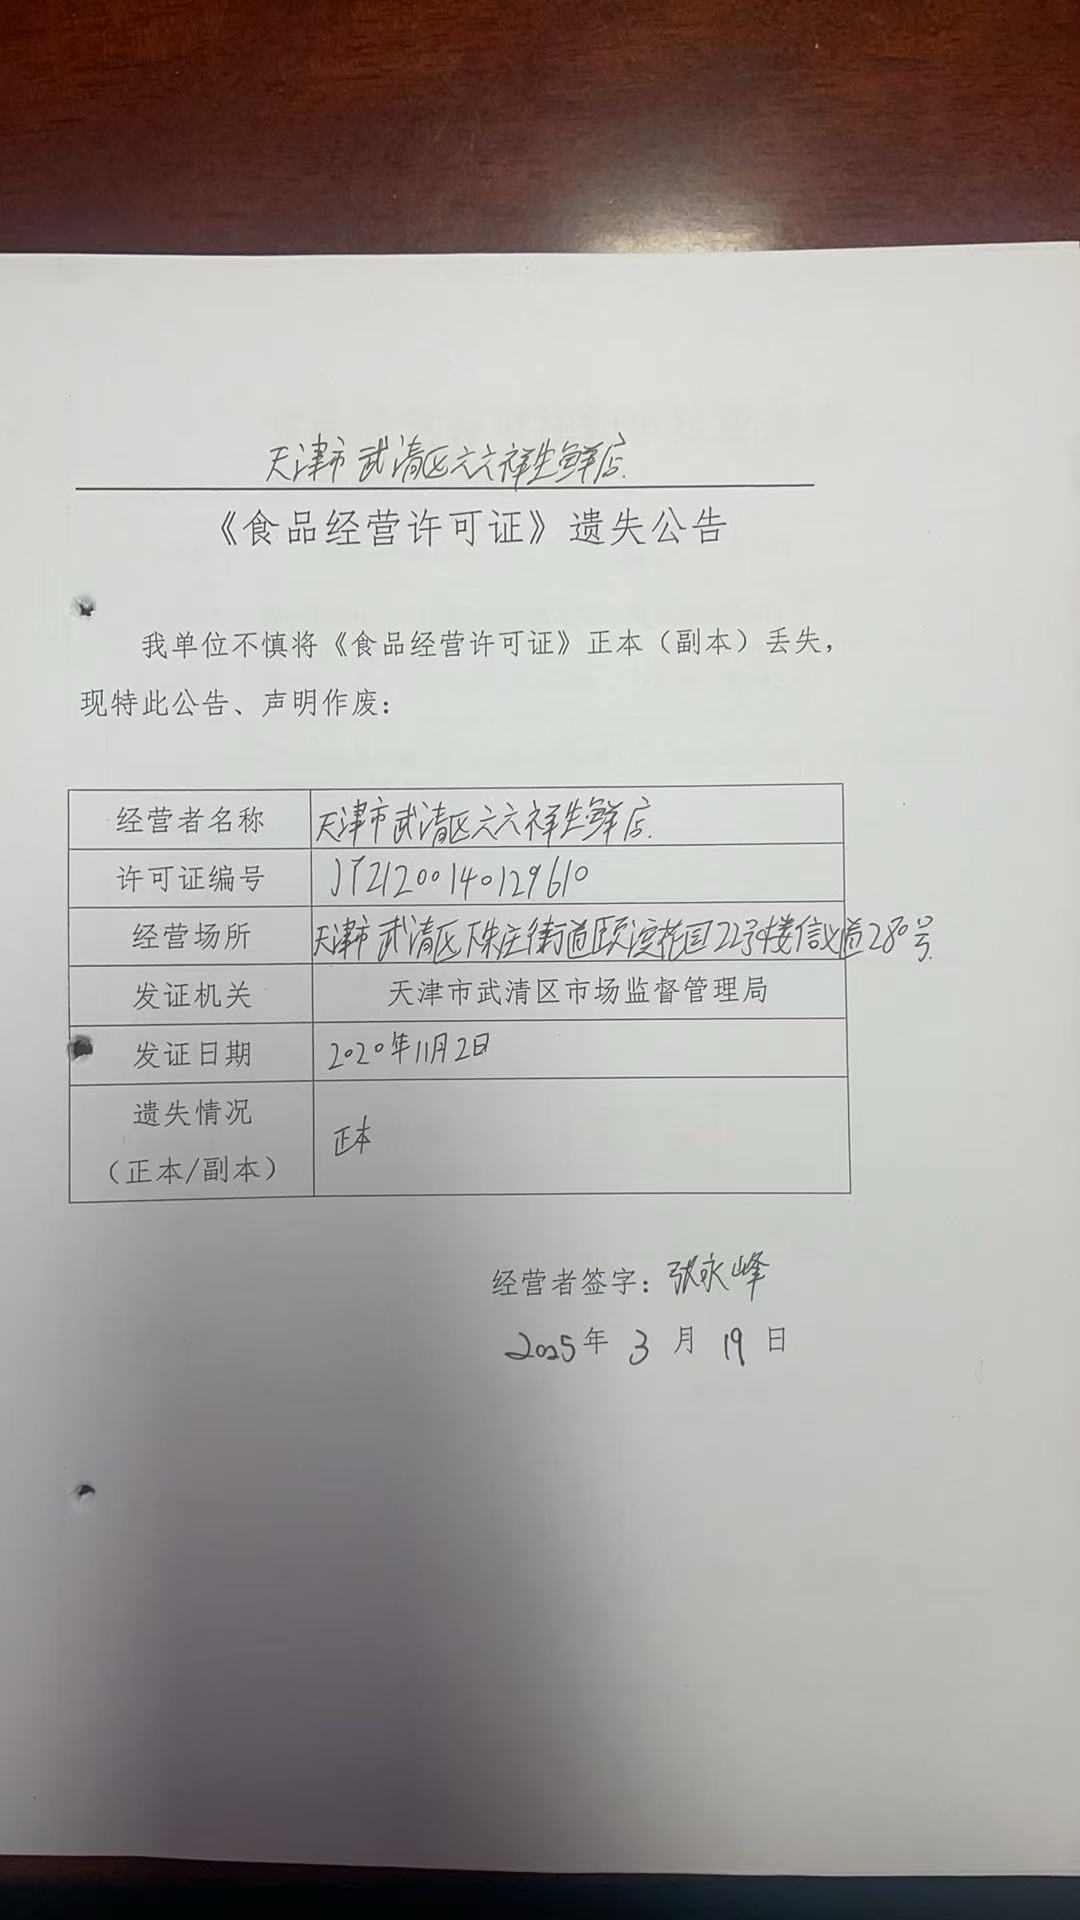 天津市武清区六六祥生鲜店.
《食品经营许可证》遗失公告
我单位不慎将《食品经营许可证》正本（副本）丢失，
现特此公告、声明作废：
经营者名称 天津市武清区六六祥生鲜店.
许可证编号 JY21200140129610
经营场所 天津市武清区下朱庄街道颐淀花园22号楼信义道280号.
发证机关 天津市武清区市场监督管理局
发证日期 2020年11月2日
遗失情况
（正本/副本） 正本
经营者签字：张永峰
2025年 3 月 19 日